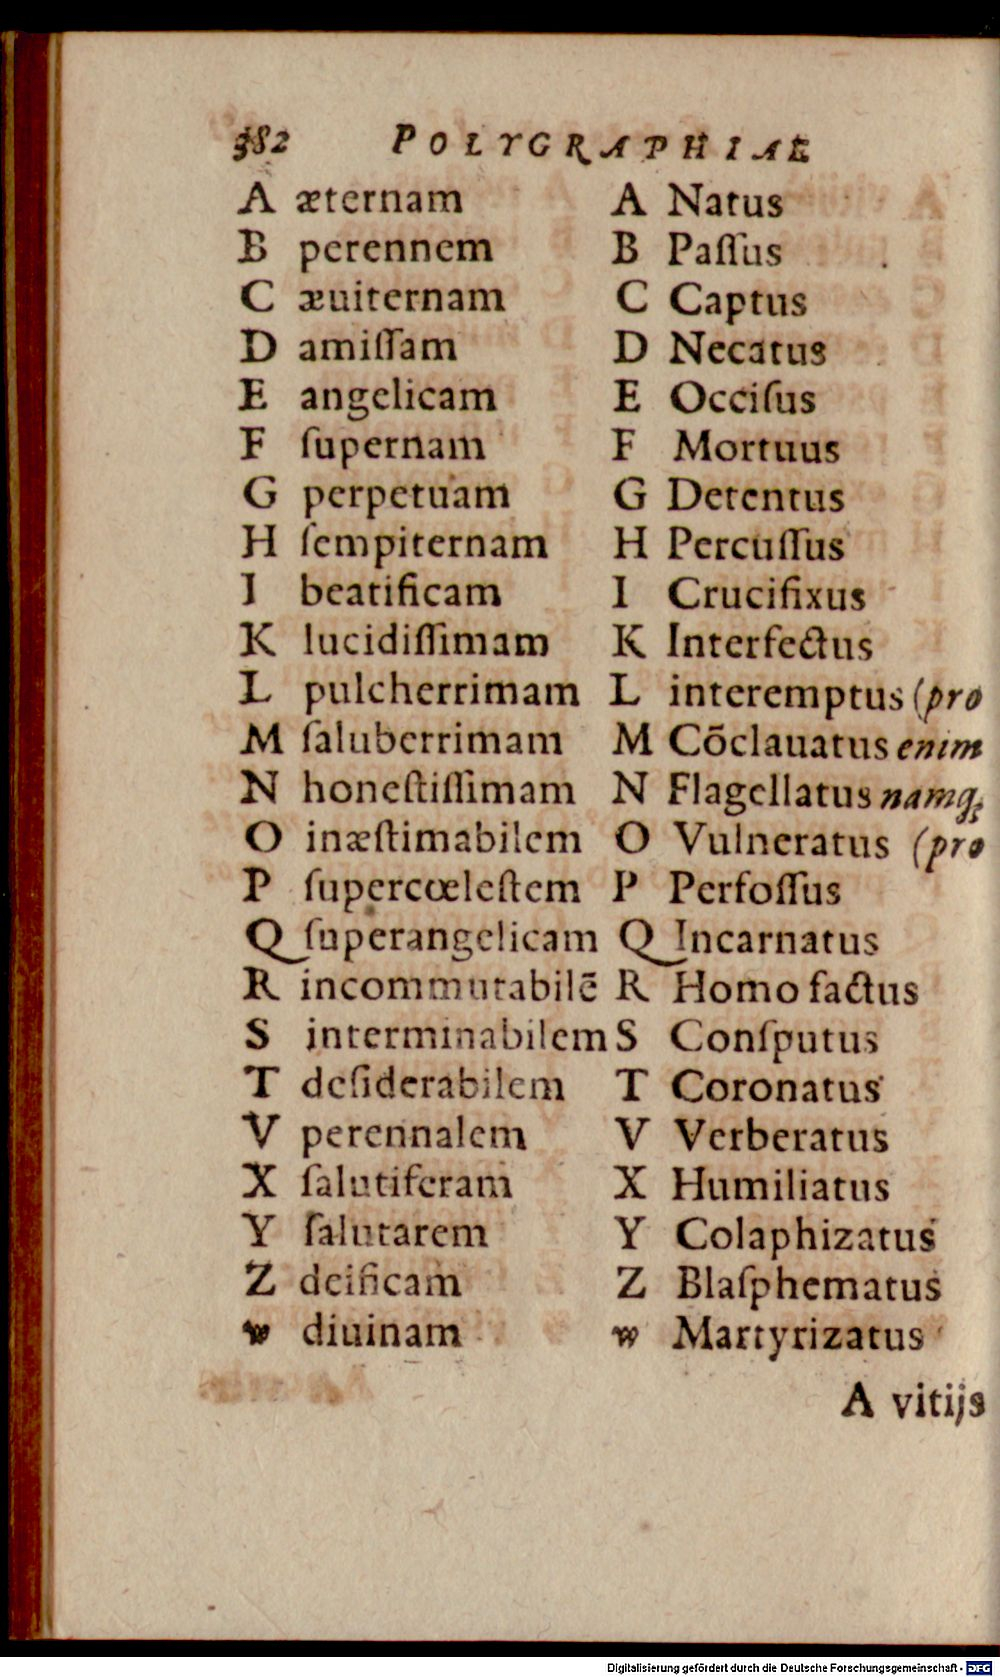 382 POLYGRAPHIAE
A æternam
B perennem
C æuiternam
D amiſſam
E angelicam
F ſupernam
G perpetuam
H ſempiternam
I beatificam
K lucidiſſimam
L pulcherrimam
M ſaluberrimam
N honeſtiſſimam
O inæſtimabilem
P ſupercœleſtem
Q ſuperangelicam
R incommutabilē
S interminabilem
T deſiderabilem
V perennalem
X ſalutiferam
Y ſalutarem
Z deificam
w diuinam
A Natus
B Paſſus
C Captus
D Necatus
E Occiſus
F Mortuus
G Detentus
H Percuſſus
I Crucifixus
K Interfectus
L interemptus (pro
M Cōclauatus enim
N Flagellatus namq;
O Vulneratus (pro
P Perfoſſus
Q Incarnatus
R Homo factus
S Conſputus
T Coronatus
V Verberatus
X Humiliatus
Y Colaphizatus
Z Blaſphematus
w Martyrizatus
A vitijs
Digitalisierung gefördert durch die Deutsche Forschungsgemeinschaft - DFG